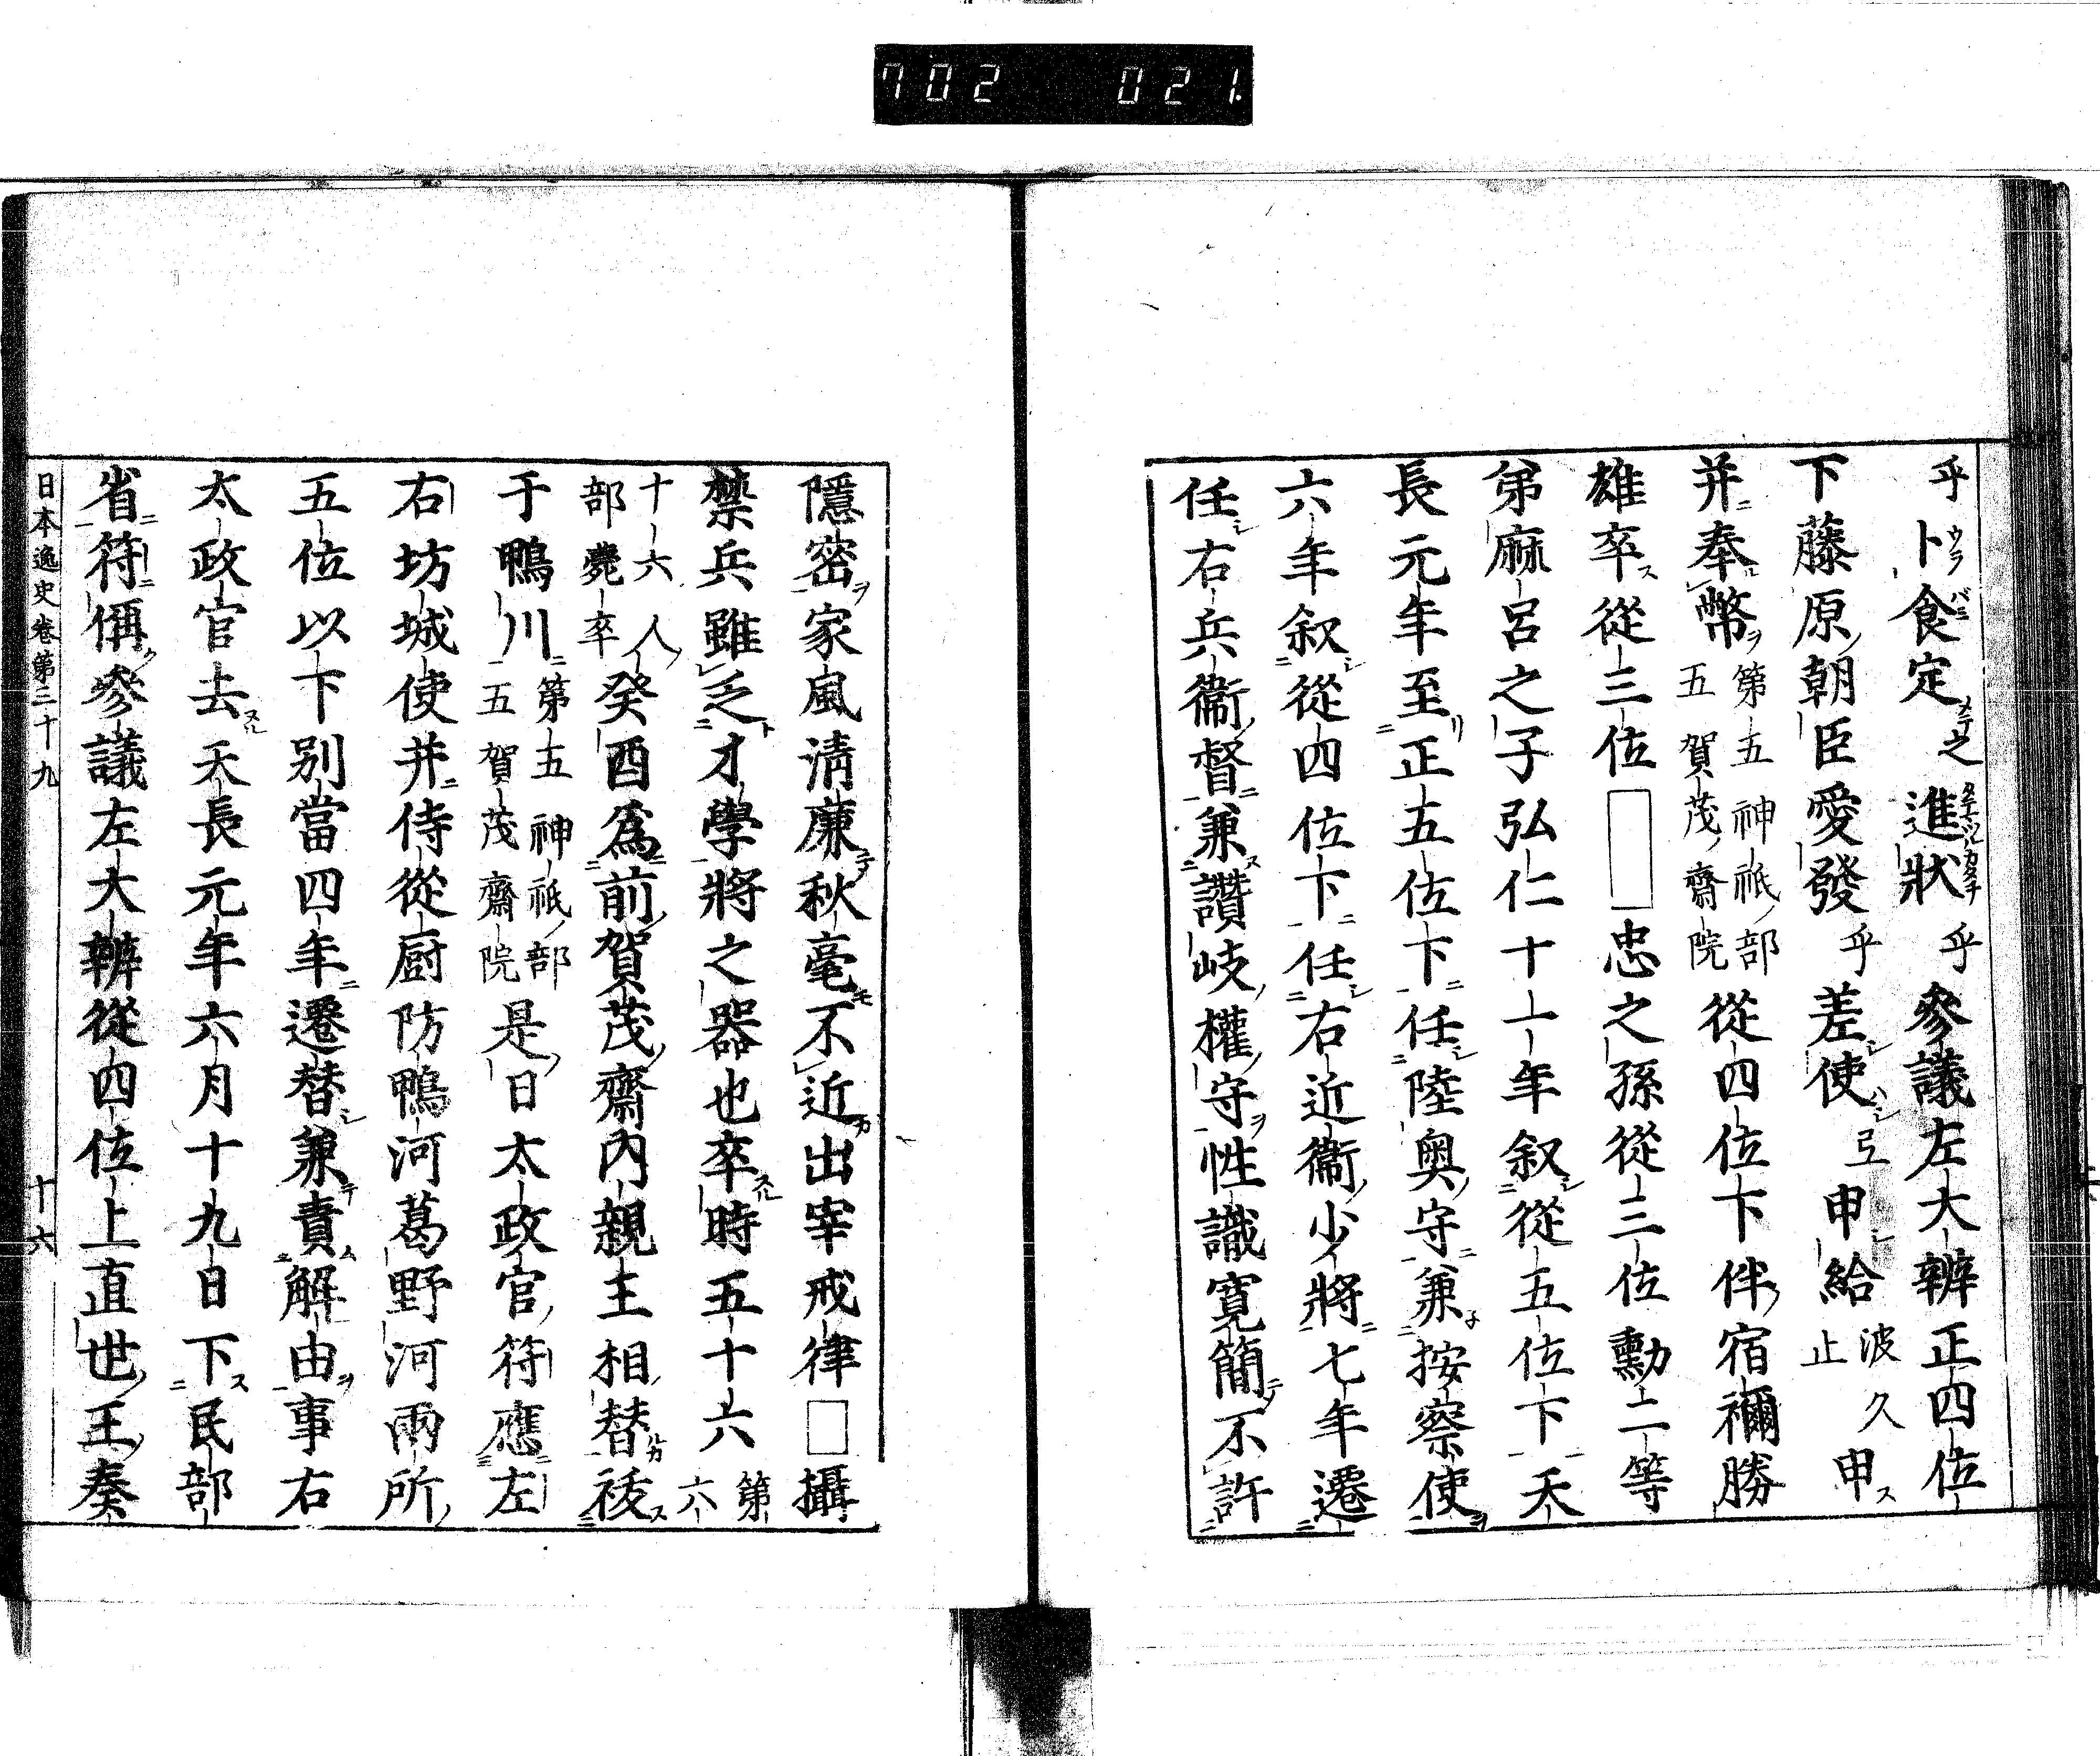 702 021.
乎卜食定之進狀乎參議左大辨正四位
下藤原朝臣愛發乎差使弖申給波久止申
并奉幣第五神祇部五賀茂齋院從四位下伴宿禰勝
雄卒從三位□忠之孫從三位勳二等
弟麻呂之子弘仁十一年叙從五位下天
長元年至正五位下任陸奧守兼按察使
六年叙從四位下任右近衞少將七年遷
任右兵衞督兼讚岐權守性識寬簡不許
隱密家風淸廉秋毫不近出宰戒律□攝
禁兵雖乏才學將之器也卒時五十六第六
十六人部薨卒癸酉爲前賀茂齋內親王相替祓
于鴨川第五神祇部五賀茂齋院是日太政官符應左
右坊城使并侍從厨防鴨河葛野河兩所
五位以下別當四年遷替兼責解由事右
太政官去天長元年六月十九日下民部
省符偁參議左大辨從四位上直世王奏
日本逸史卷第三十九 十六